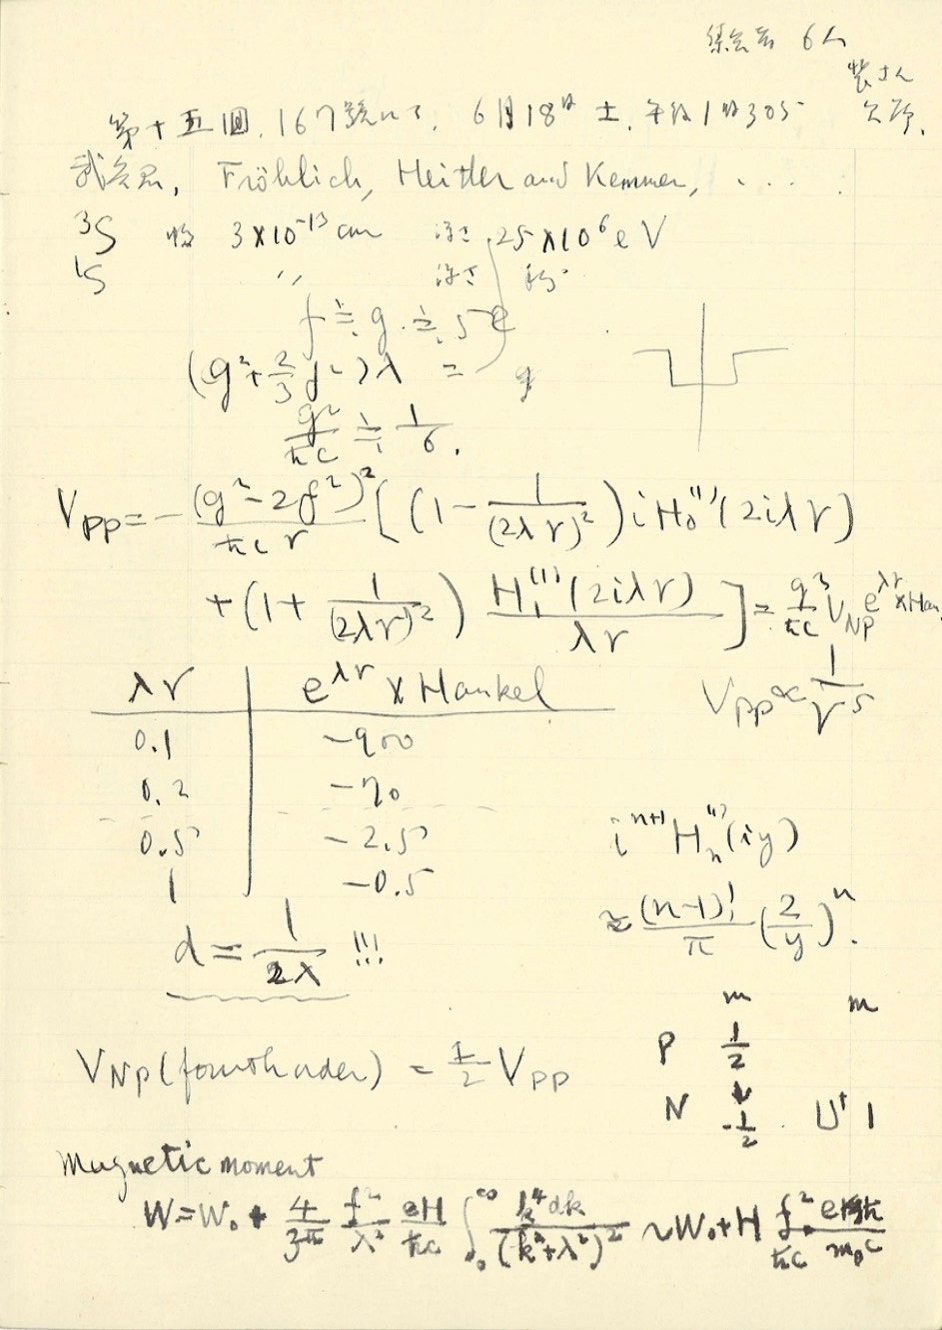 6人
欠席.
第十五回. 167号にて. 6月18日 土. 午後1時30分
武谷君, Fröhlich, Heitler and Kemmer, . . . .
³S 巾 3×10⁻¹³ cm 深さ 25×10⁶ eV
¹S 〃 深さ 約
f ≒ g ≒ 5e
(g² + 2/3 f²)λ =
g²/ħc ≒ 1/6.
V_PP = − (g² − 2f²)²/ħcr [ (1 − 1/(2λr)²) i H₀⁽¹⁾(2iλr)
+ (1 + 1/(2λr)²) H₁⁽¹⁾(2iλr)/λr ] = g²/ħc V_NP e^λr × Han.
V_PP ∝ 1/r⁵
λr e^λr × Hankel
0.1 −900
0.2 −70
0.5 −2.5
1 −0.5
i^(n+1) H_n⁽¹⁾(iy)
≈ (n−1)!/π (2/y)^n.
d = 1/2λ !!!
m m
P 1/2
N −1/2 U† 1
V_NP (fourth order) = 1/2 V_PP
Magnetic moment
W = W₀ + 4/3π f²/λ² eH/ħc ∫₀^∞ k⁴dk/(k²+λ²)² ~ W₀ + H f²/ħc eħ/m_p c